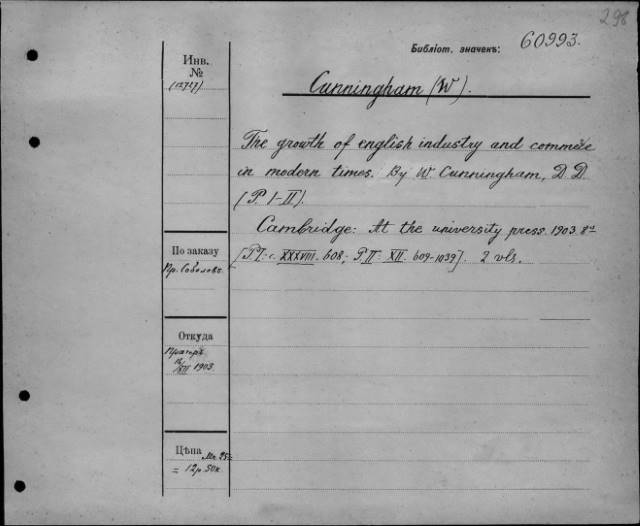 298
Библіот. значекъ: 60993.
Инв.
№
(12727)
Cunningham (W).
The growth of english industry and commerce
in modern times. By W. Cunningham, D. D.
(P. I-II).
Cambridge: At the university press. 1903. 8º
[P I: c. XXXVIII. 608; P II: XII. 609-1039]. 2 vls.
По заказу
Пр. Соболевъ
Откуда
XII 1903
Цѣна
Мк. 25=
= 12р. 50к.